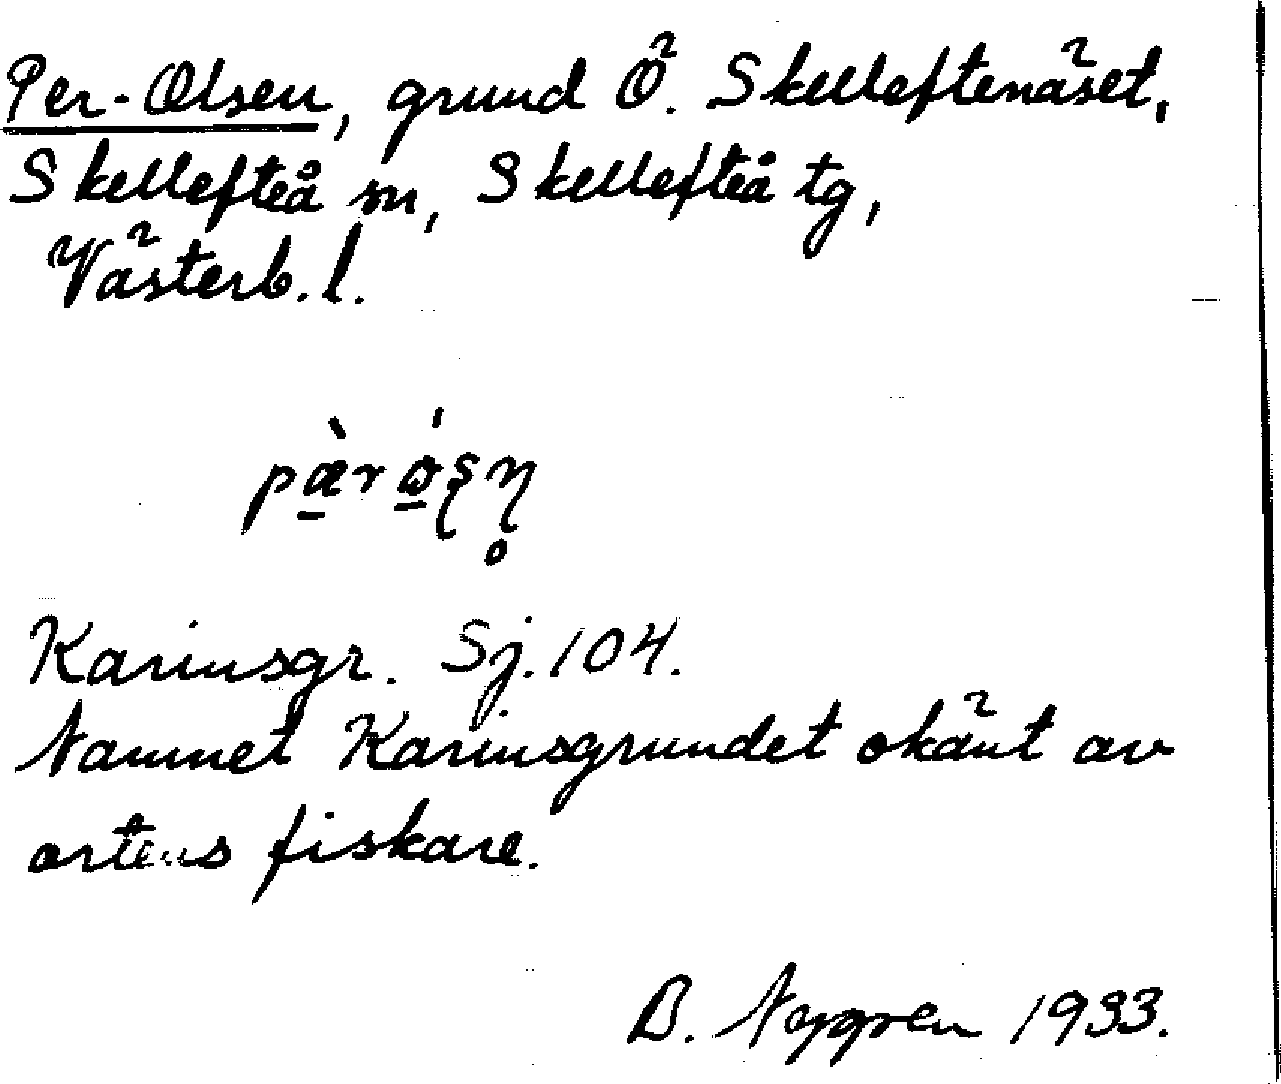 Per-Olsen, grund Ö. Skelleftenäset,
Skellefteå sn, Skellefteå tg,
Västerb. l.
pæ̠̀r ώ̠ʂṇ̥
Karinsgr. Sj. 104.
Namnet Karinsgrundet okänt av
ortens fiskare.
B. Nygren 1933.